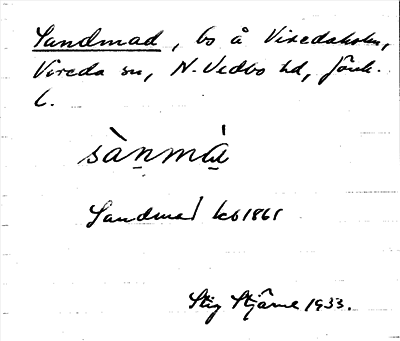 Sandmad, bo å Viredaholm,
Vireda sn, N. Vedbo hd, Jönk.
l.
sànma̱
Sandmad kb 1861
Stig Stjärne 1933.